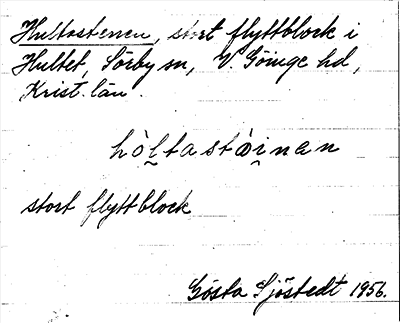 Hultastenen, stort flyttblock i
Hultet, Sörby sn, V. Göinge hd,
Krist. län.
hòltastæ̀inen
stort flyttblock
Gösta Sjöstedt 1956.